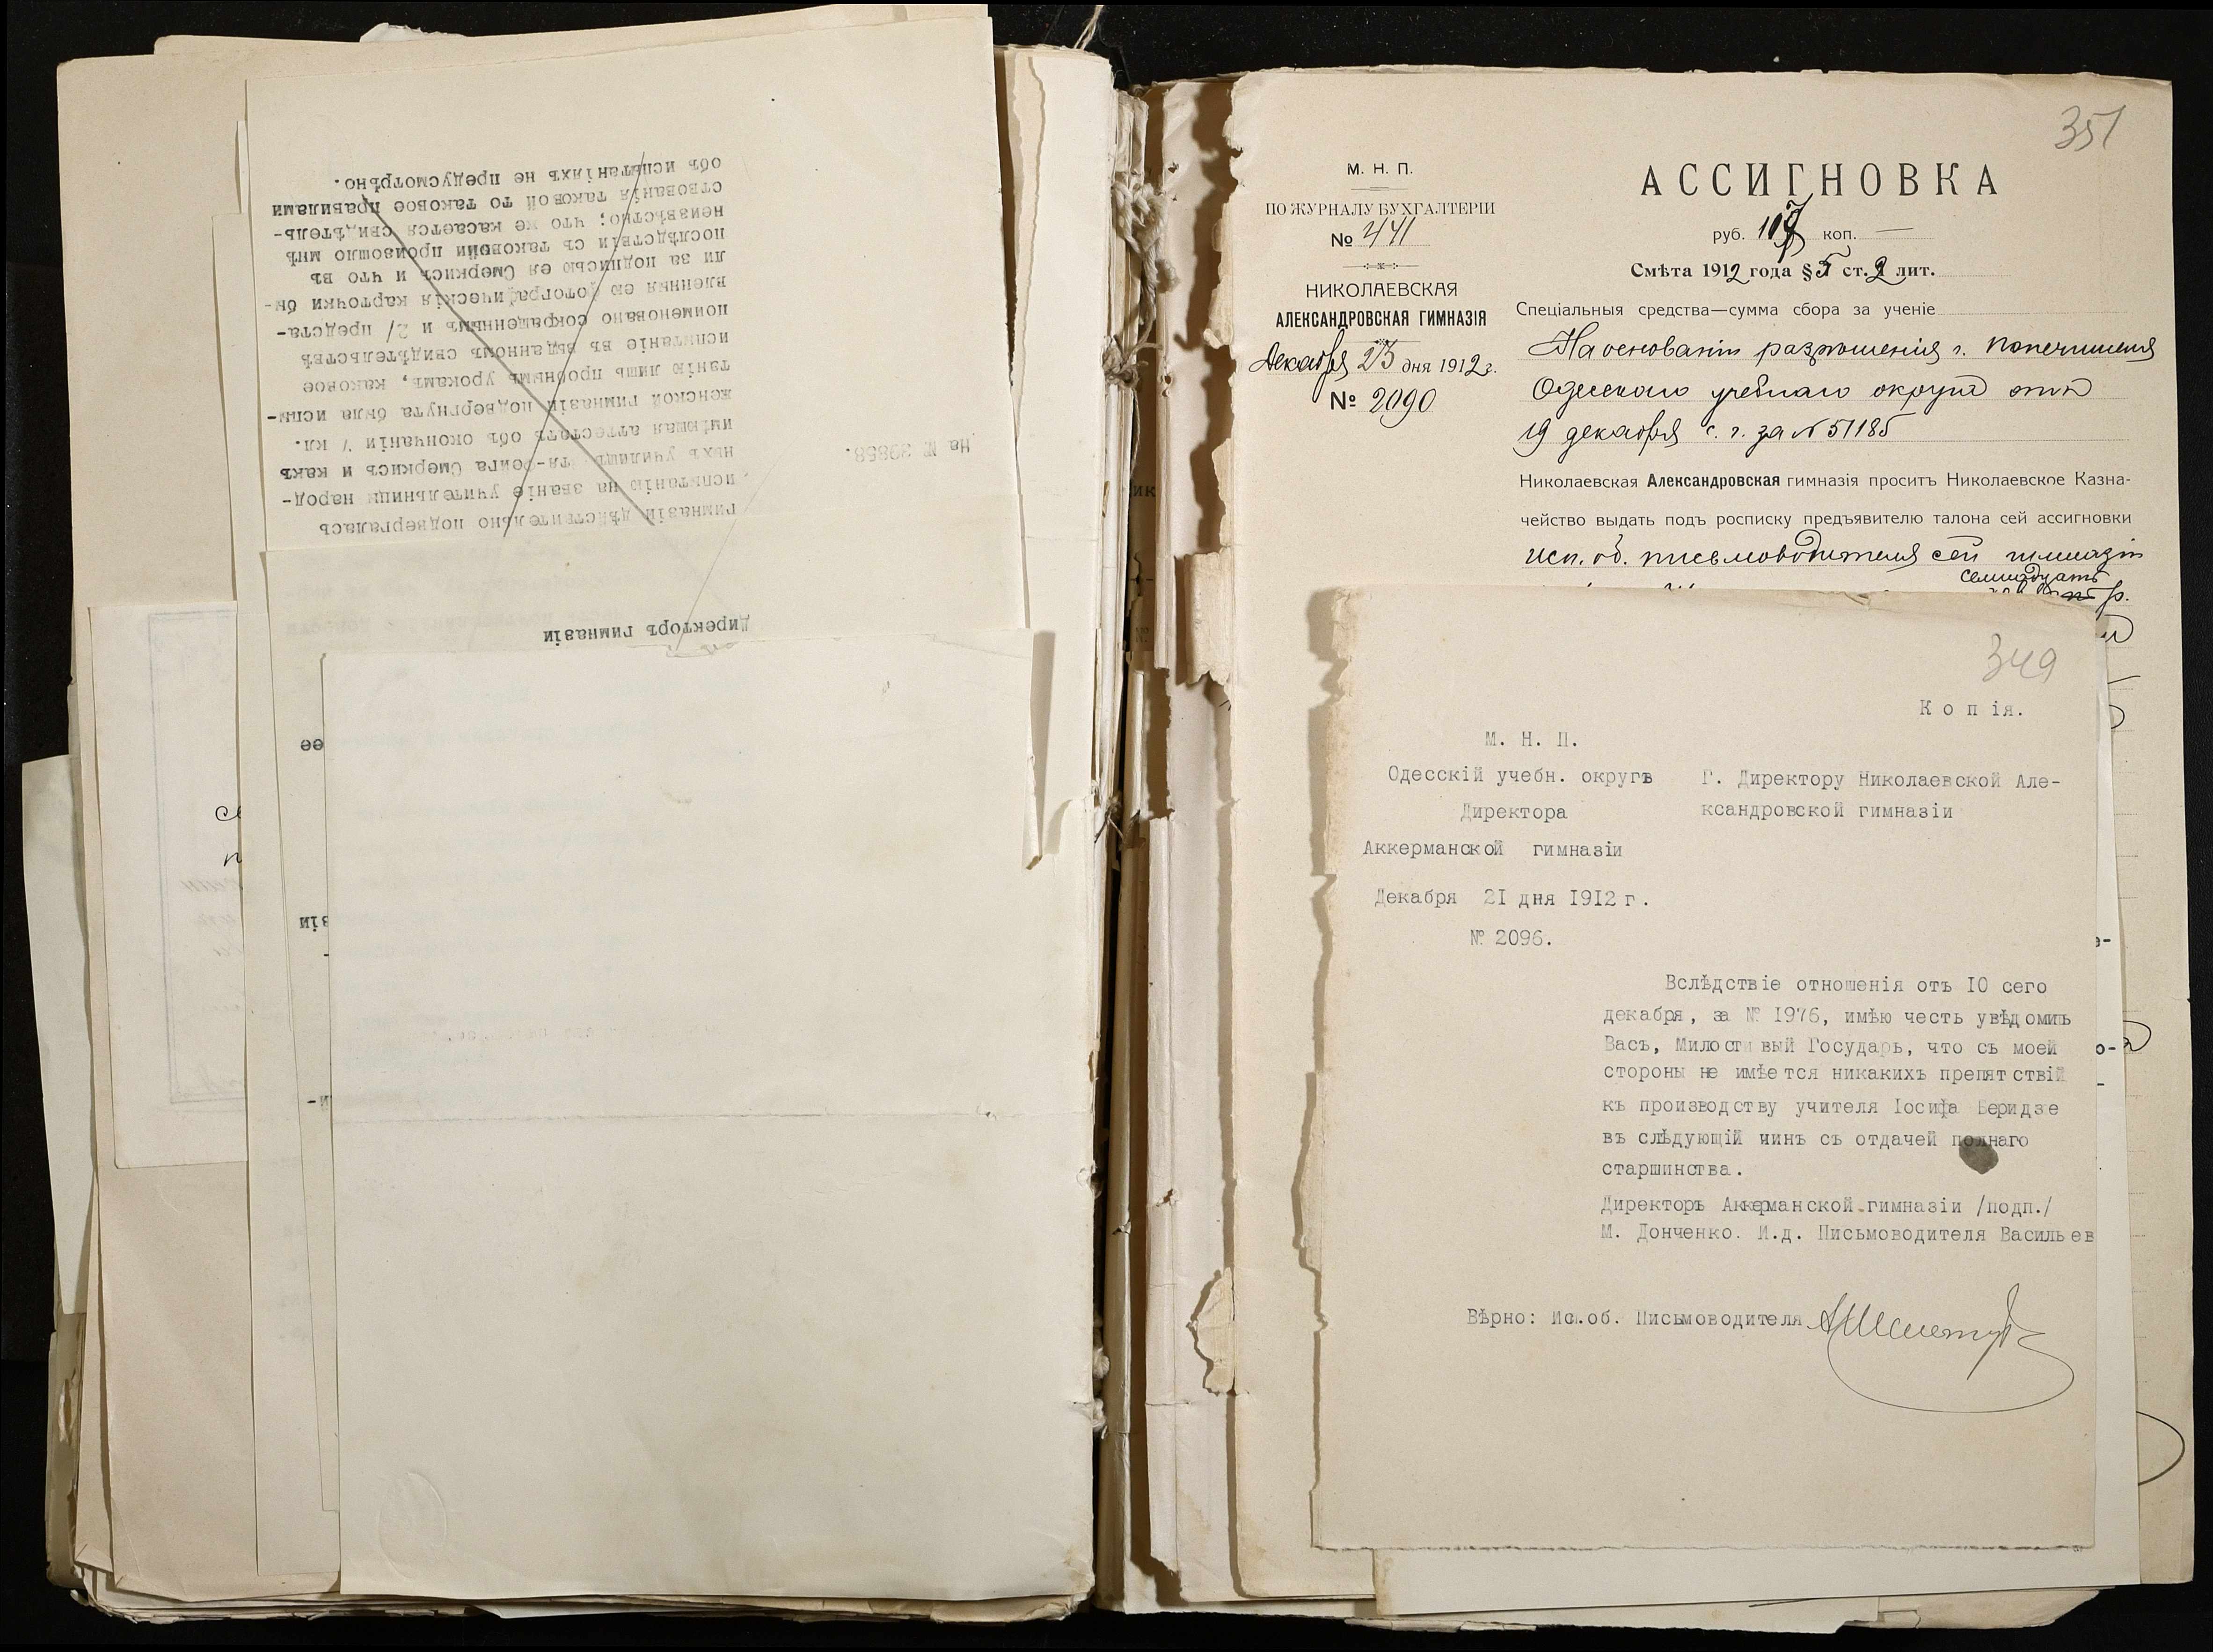 гимназіи дѣйствительно подвергалась
испытанію на званіе учительницы народ-
ныхъ училищъ Смеркисъ и какъ
имѣющая аттестатъ объ окончаніи кл.
женской гимназіи подвергнута была испы-
танію лишь пробнымъ урокамъ, каковое
испытаніе въ выданномъ свидѣтельствѣ
поименовано сокращеннымъ и 2/ предста-
вленныя ею фотографическія карточки бы-
ли за подписью ея Смеркисъ и что въ
послѣдствіи съ таковыми произошло мнѣ
неизвѣстно; что же касается свидѣтель-
ствованія таковой то таковое правилами
объ испытаніяхъ не предусмотрѣно.
На № 39858.
Директоръ гимназіи
351
М. Н. П.
ПО ЖУРНАЛУ БУХГАЛТЕРІИ
№ 441
НИКОЛАЕВСКАЯ
АЛЕКСАНДРОВСКАЯ ГИМНАЗІЯ
Декабря 23 дня 1912 г.
№ 2090
АССИГНОВКА
руб. коп. —
Смѣта 1912 года § 5 ст. 2 лит.
Спеціальныя средства—сумма сбора за ученіе
На основаніи разрѣшенія г. Попечителя
Одесскаго учебнаго округа отъ
19 декабря с. г. за № 51185
Николаевская Александровская гимназія проситъ Николаевское Казна-
чейство выдать подъ росписку предъявителю талона сей ассигновки
исп. об. письмоводителя сей гимназіи
семнадцать
р.
349
Копія.
М. Н. П.
Одесскій учебн. округъ
Директора
Аккерманской гимназіи
Декабря 21 дня 1912 г.
№ 2096.
Г. Директору Николаевской Але-
ксандровской гимназіи
Вслѣдствіе отношенія отъ 10 сего
декабря, за № 1976, имѣю честь увѣдомить
Васъ, Милостивый Государь, что съ моей
стороны не имѣется никакихъ препятствій
къ производству учителя Іосифа Беридзе
въ слѣдующій чинъ съ отдачей полнаго
старшинства.
Директоръ Аккерманской гимназіи /подп./
М. Донченко. И.д. Письмоводителя Васильев
Вѣрно: Исп.об. Письмоводителя